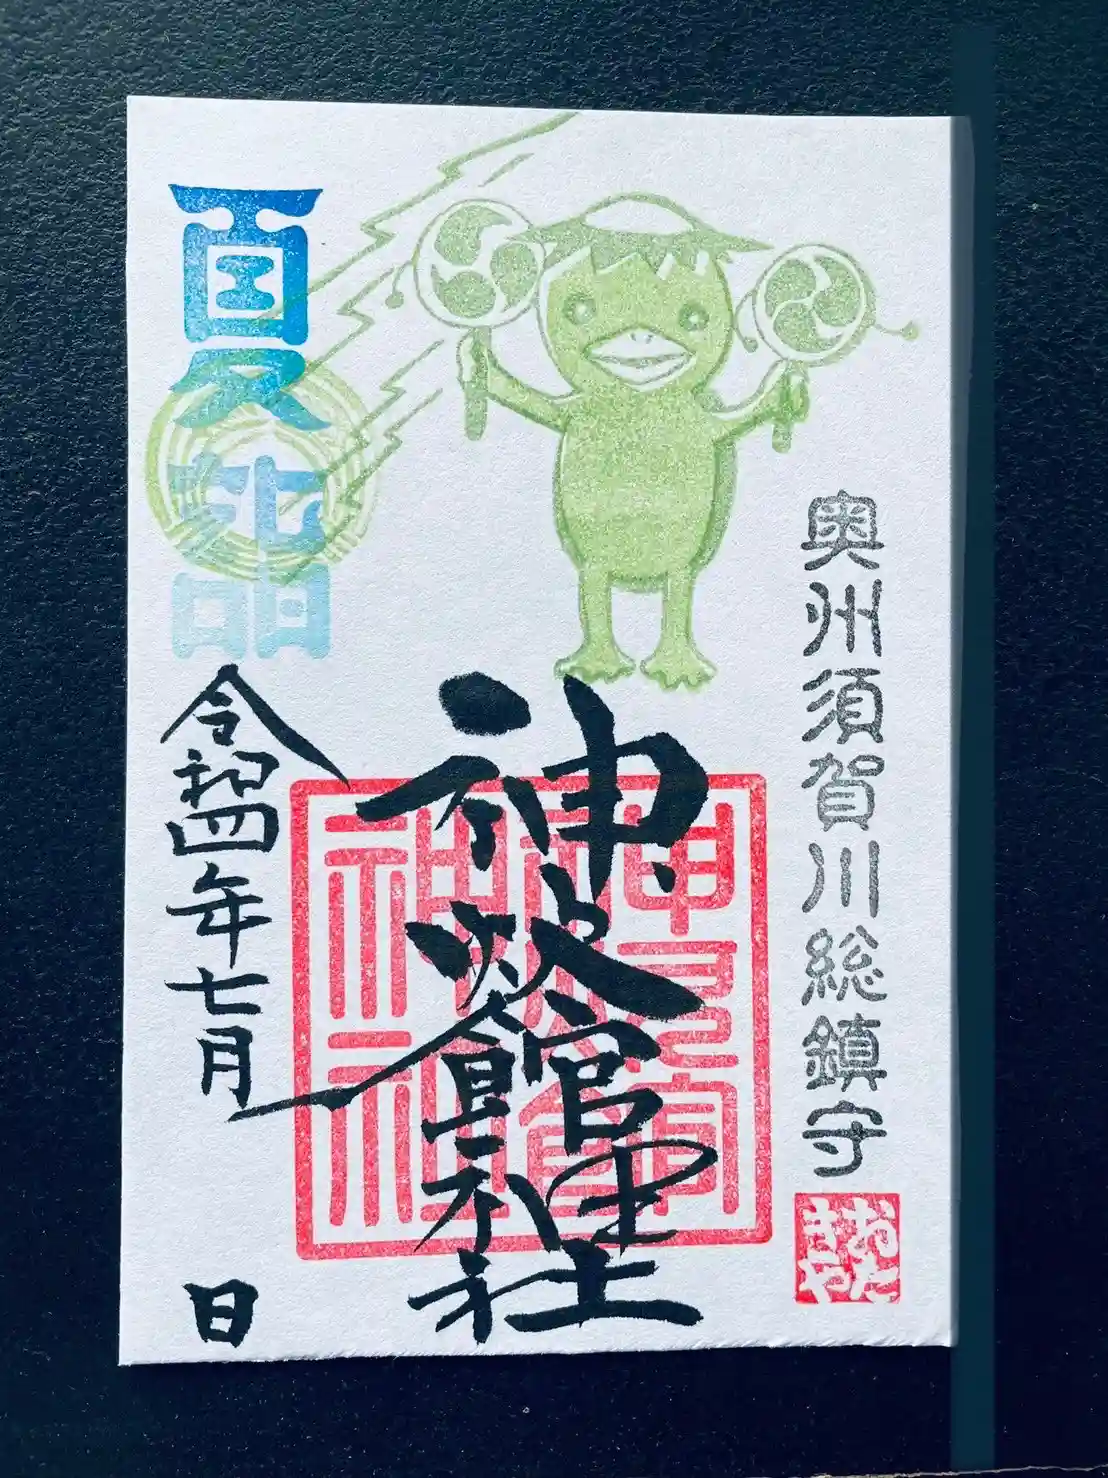 奥州須賀川総鎮守
おたきや
神炊館神社
夏詣
令和四年七月 日